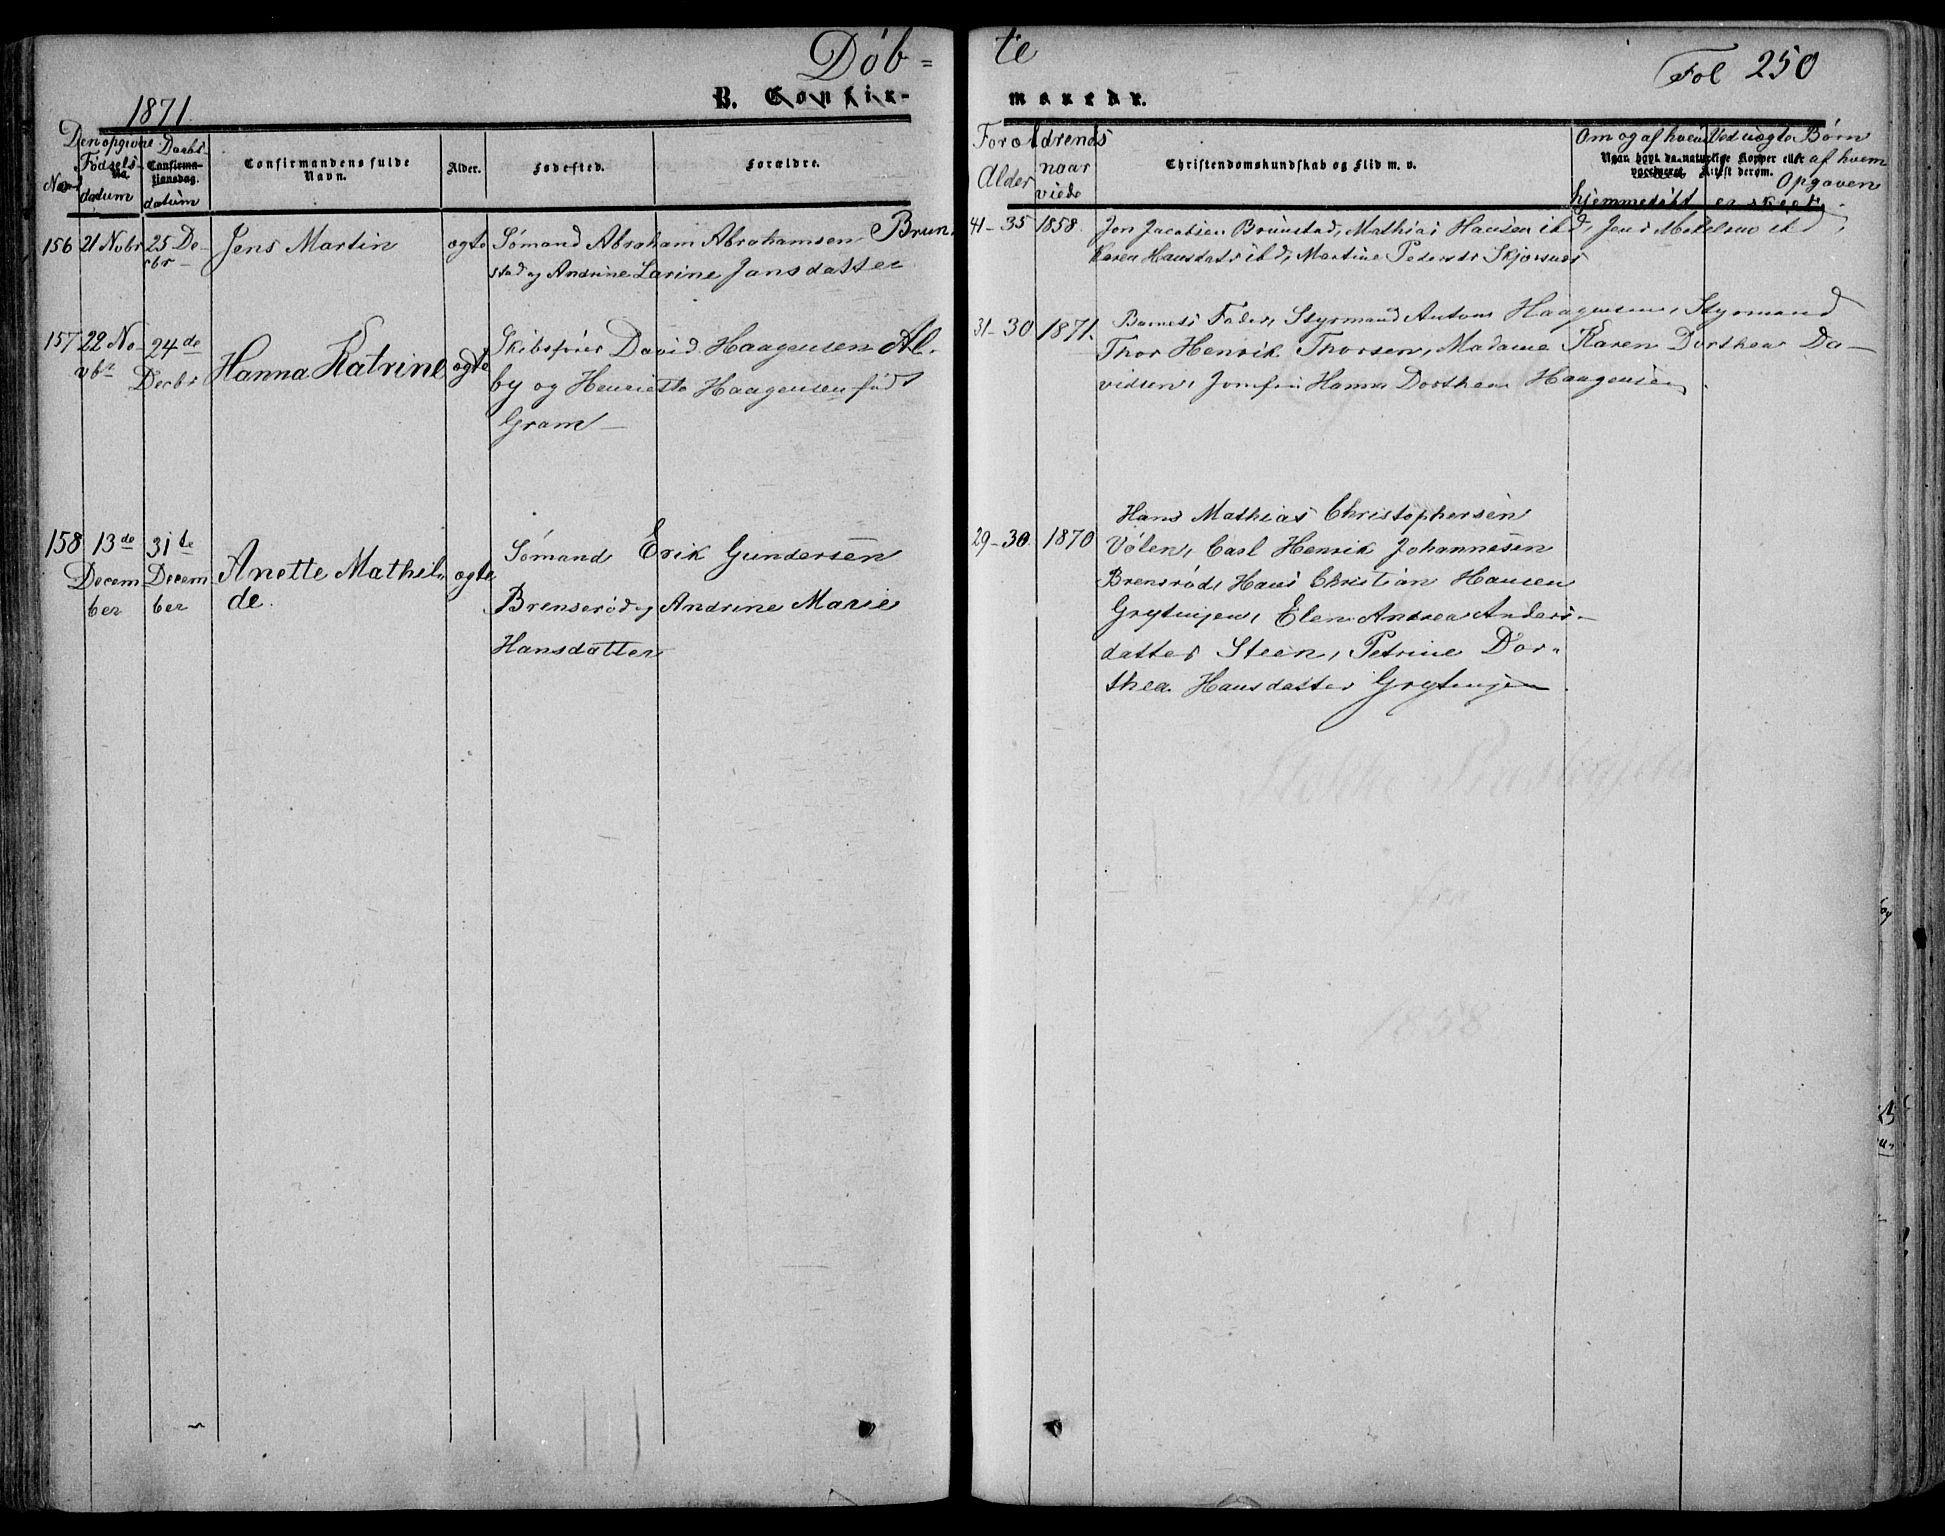 Döb=
te
Fol 250
1871.
B. Confir-
marede.
Den opgivne
Fødsels-
datum
Daabs-
Confirma-
tionsdag.
datum
Confirmandens fulde
Navn.
Alder.
Fødested.
Forældre.
Forældrenes
Alder
naar
viede
Christendomskundskab og Flid m. v.
Om og af hvem
hjemmedøbt
Ved uægte Børn
af hvem
Opgaven
er skeet
156
21 Nobr
25 De-
cbr
Jens Martin
ægte
Sømand Abraham Abrahamsen Brun-
stad og Andrine Larine Jansdatter
41-35
1858.
Jon Jacobsen Brunstad, Mathias Hansen ibd,
Karen Hansdatr ibd, Martine Pedersdr
157
22 No-
vbr
24de
Decbr
Hanna Katrine
ægte
Skibsfører David Haagensen Al-
by og Henriette Haagensen født
Gram
31-30
1871.
Barnets Fader, Styrmand Anton Haagensen, Styrmand
Thor Henrik Thorsen, Madame Karen Dorthea Da-
vidsen, Jomfru Hanna Dorthea Haagensen
158
13de
Decem
ber
31te
Decem
ber
Anette Mathil
de.
ægte
Sømand Erik Gundersen
Brenserød og Andrine Marie
Hansdatter
29-30.
1870
Hans Mathias Christophersen
Vølen, Carl Henrik Johannesen
Brensrød, Hans Christian Hansen
Grytingen, Elen Andrea Anders-
datter Steen, Petrine Dor-
thea Hansdatter Grytingen
1858